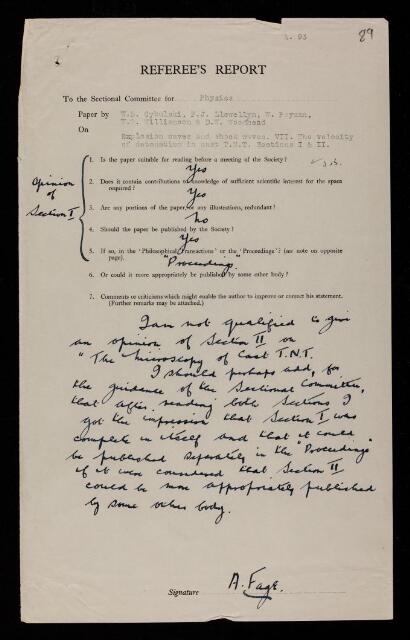 89
REFEREE'S REPORT
To the Sectional Committee for Physics
Paper by W.B. Cybulski, F.J. Llewellyn, W. Payman,
D.W. Woodhead
On Explosion waves and shock waves. VII. The velocity
of detonation in cast T.N.T. Sections I & II.
Opinion of Section I
1. Is the paper suitable for reading before a meeting of the Society?
Yes
2. Does it contain contributions to knowledge of sufficient scientific interest for the space
required?
Yes
3. Are any portions of the paper, or any illustrations, redundant?
No
4. Should the paper be published by the Society?
Yes
5. If so, in the 'Philosophical Transactions' or the 'Proceedings'? (see note on opposite
page).
"Proceedings"
6. Or could it more appropriately be published by some other body?
7. Comments or criticisms which might enable the author to improve or correct his statement.
(Further remarks may be attached.)
I am not qualified to give
an opinion of Section II on
"The microscopy of Cast T.N.T.
I should perhaps add, for
the guidance of the Sectional Committee,
that after reading both Sections I
got the impression that Section I was
complete in itself and that it could
be published separately in the "Proceedings"
if it were considered that Section II
could be more appropriately published
by some other body.
Signature A. Fage.